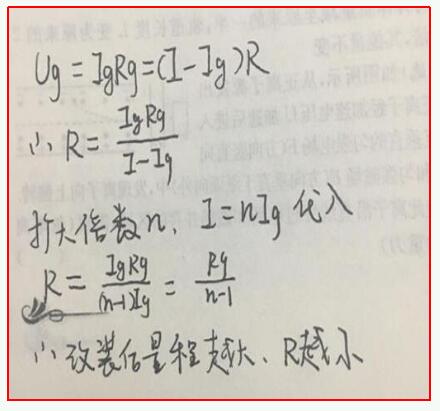 Ug = IgRg = (I-Ig)R
∴ R = IgRg / (I-Ig)
扩大倍数n, I = nIg 代入
R = IgRg / (n-1)Ig = Rg / (n-1)
∴ 改装后量程越大、R越小